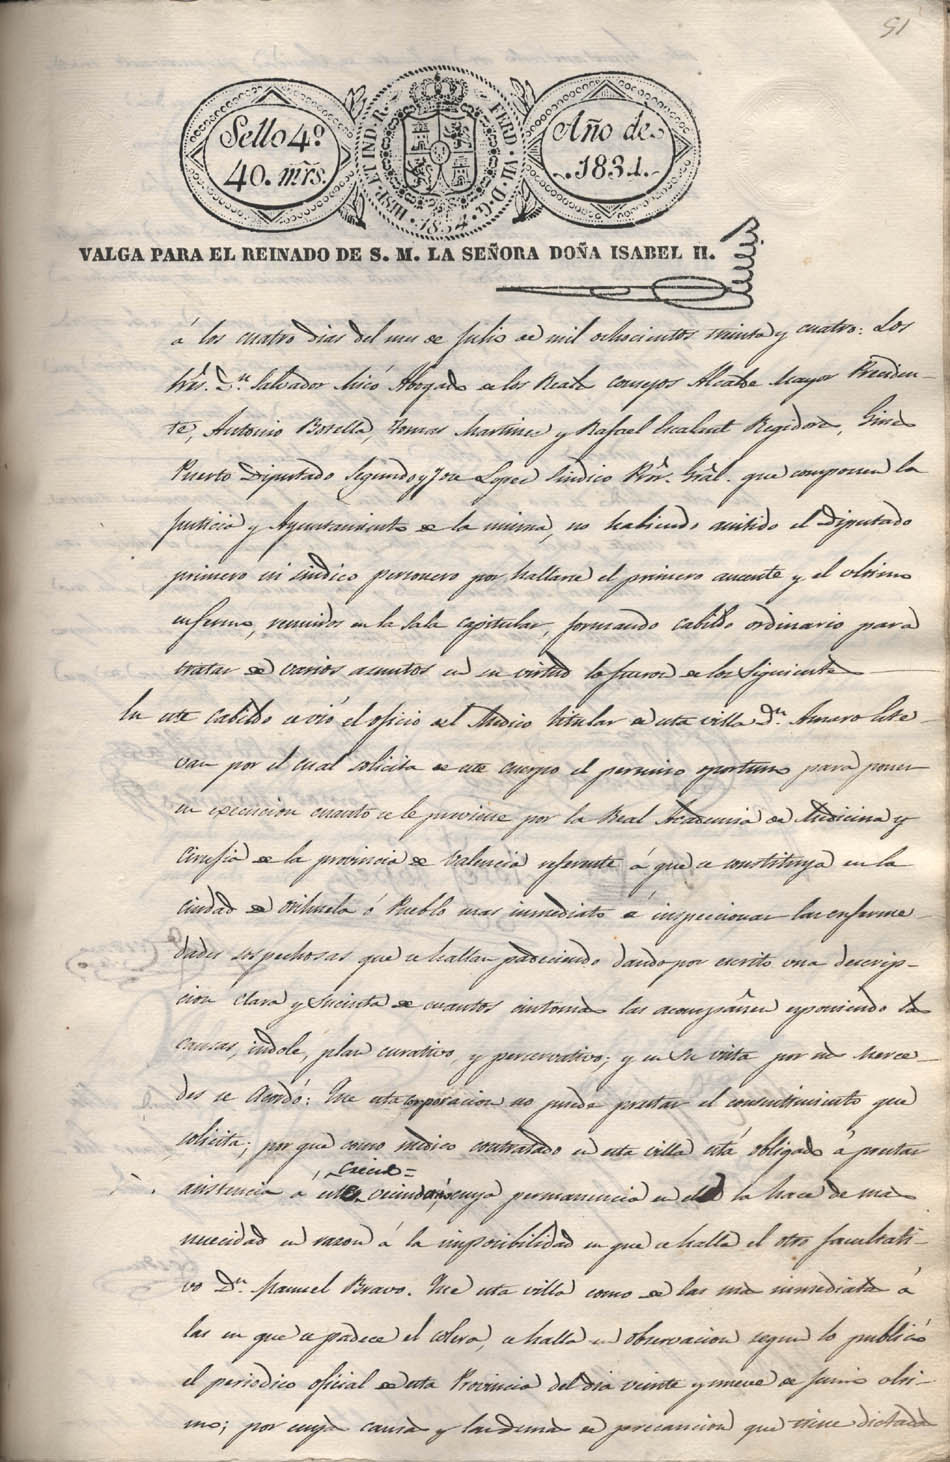 51
Sello 4º
40. mrs.
HISP. ET IND. R. FERD. VII. D. G. 1834.
Año de
1834.
VALGA PARA EL REINADO DE S. M. LA SEÑORA DOÑA ISABEL II.
á los cuatro dias del mes de Julio de mil ochocientos treinta y cuatro: Los
Sres. Dn. Salvador Micó Abogado de los Reales consejos Alcalde Mayor Presiden-
te, Antonio Botella, Tomas Martinez y Rafael Escalant Regidores, Gines
Puerto Diputado Segundo y Jose Lopez Sindico Pror. Gral. que componen la
Justicia y Ayuntamiento de la misma, no habiendo asistido el Diputado
primero ni sindico personero por hallarse el primero ausente y el ultimo
enfermo, reunidos en la Sala capitular, formando cabildo ordinario para
tratar de varios asuntos en su virtud lo fueron de los Siguientes
En este Cabildo se vió el oficio del Medico titular de esta villa Dn. Amaro Este-
van por el cual solicita de este cuerpo el permiso oportuno para poner
en execucion cuanto se le previene por la Real Academia de Medicina y
Cirujia de la provincia de Valencia referente á que se constituya en la
ciudad de orihuela ó Pueblo mas inmediato á inspeccionar las enferme-
dades sospechosas que se hallan padeciendo dando por escrito una descrip-
cion clara y sucinta de cuantos sintomas las acompañen esponiendo las
causas, indole, plan curativo, y perservativo; y en su vista por sus Merce-
des se Acordó: Que esta corporacion no puede prestar el consentimiento que
solicita; por que como medico contratado en esta villa está obligado á prestar
asistencia á este vecindario, cuya permanencia en ella la hace de mas
necesidad en razon á la imposibilidad en que se halla el otro facultati-
vo Dn. Manuel Bravo. Que esta villa como de las mas inmediatas á
las en que se padece el colera, se halla en observacion segun lo publicó
el periodico oficial de esta Provincia del dia veinte y nueve de Junio ulti-
mo; por cuya causa y las demas de precaucion que tiene dictadas